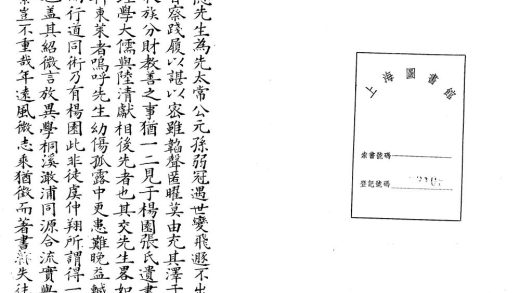 上海圖書館
索書號碼
登記號碼
先生為先太常公元孫弱冠遇世變飛遯不出
察踐履以諶以密雖韜聲匿曜莫由充其澤于
族分財教善之事猶一二見于楊園張氏遺書
理學大儒與陸清獻相後先者也其交先生畧如
東萊者嗚呼先生幼傷孤露中更患難晚益轗
行道同術乃有楊園此非徒虞仲翔所謂得一
蓋其紹微言放異學桐溪澉浦同源合流實與
豈不重哉年遠風微志乘猶徵而著書失往